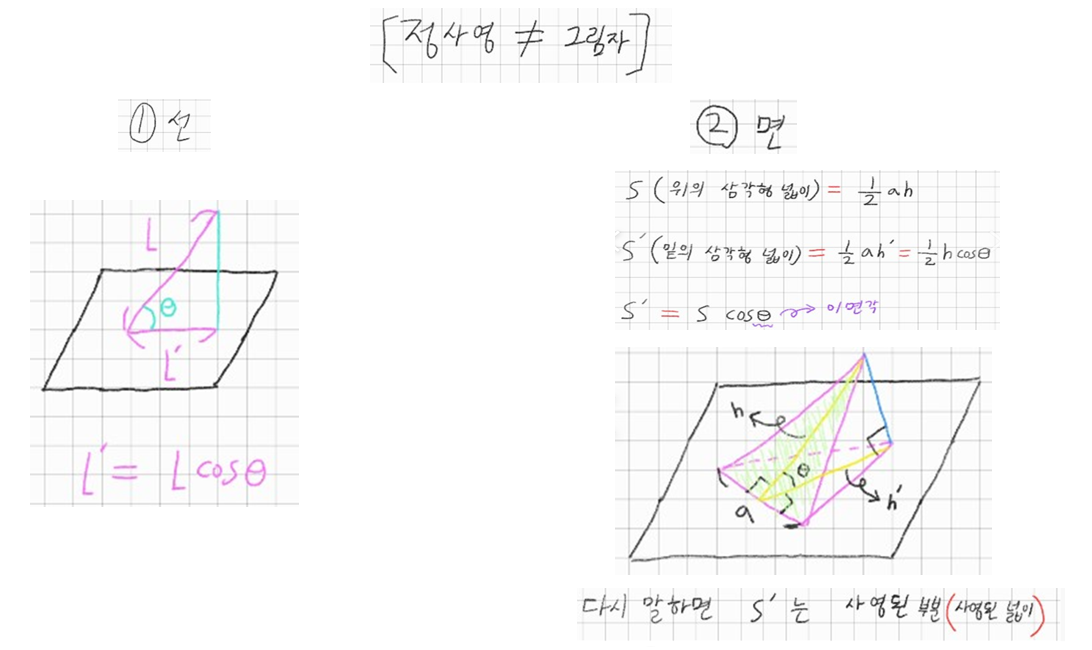 [정사영 ≠ 그림자]
① 선
L
θ
L'
L' = L cosθ
② 면
S (위의 삼각형 넓이) = 1/2 ah
S' (밑의 삼각형 넓이) = 1/2 ah' = 1/2 h cosθ
S' = S cosθ → 이면각
h
θ
a
h'
다시 말하면 S' 는 사영된 부분(사영된 넓이)